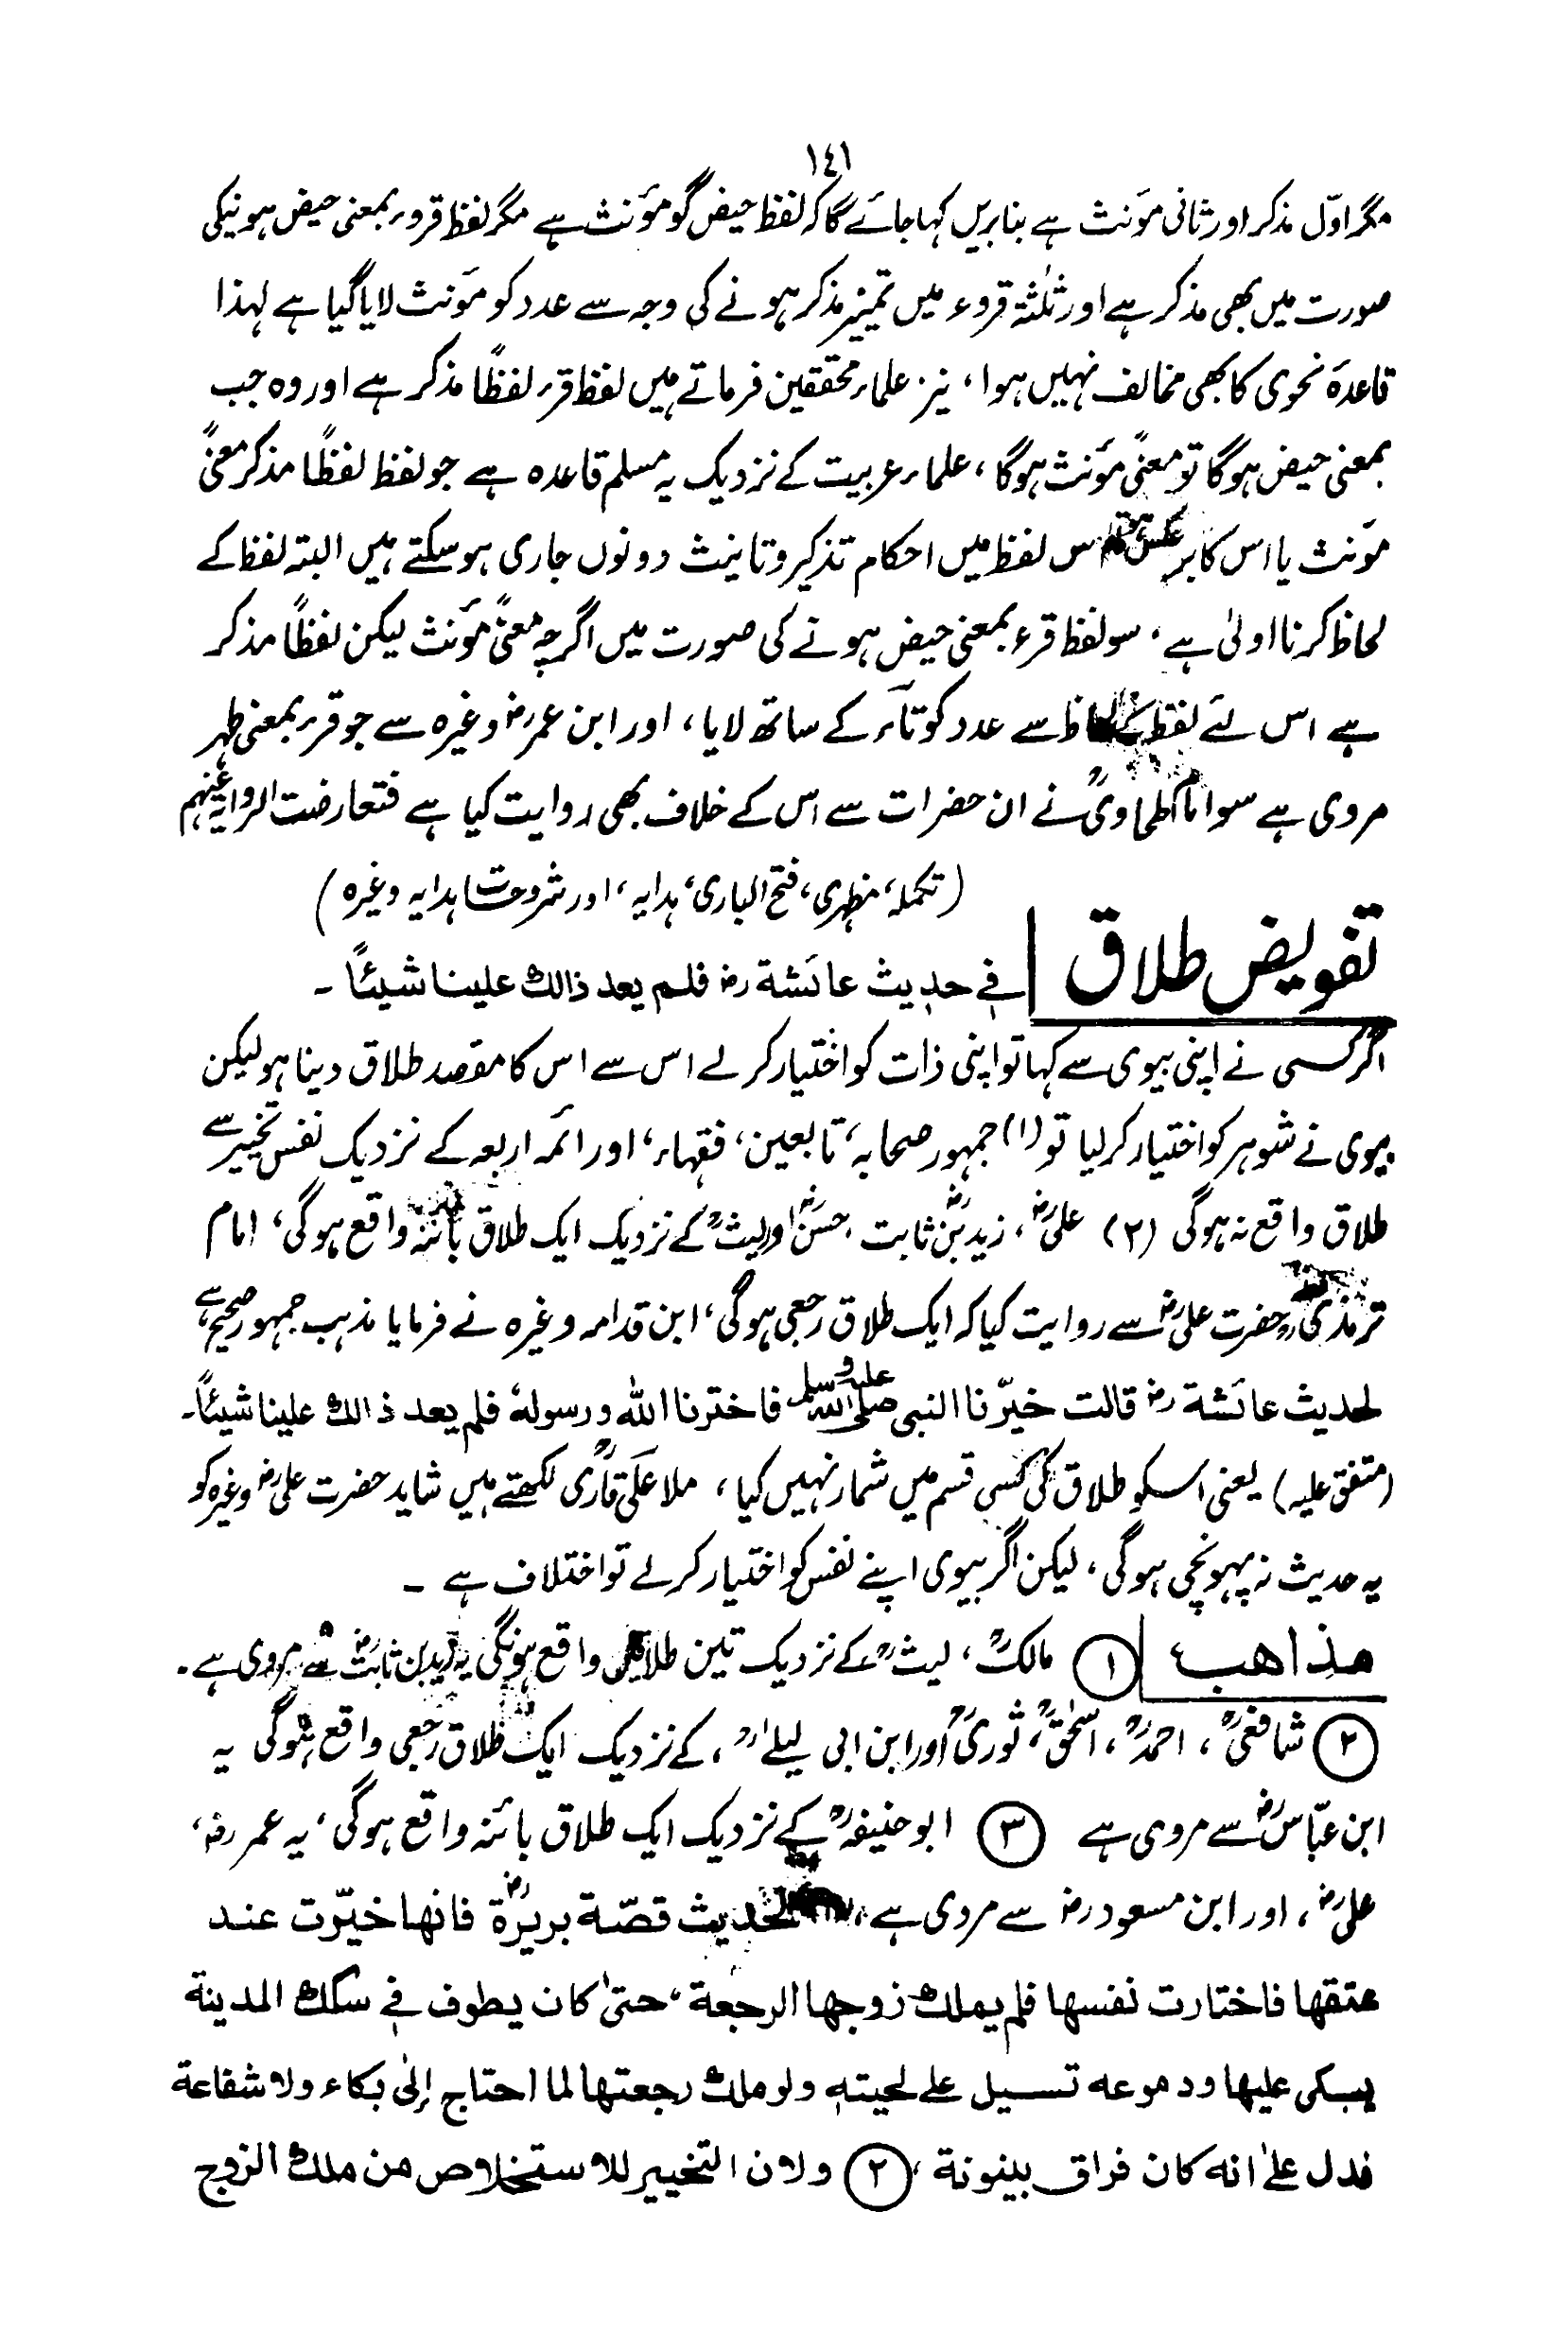 ١٤١
مگر اوّل مذکر اور ثانی مؤنث ہے بنابریں کہا جائے گا کہ لفظ حیض گو مؤنث ہے مگر لفظ قروء بمعنی حیض ہونیکی
صورت میں بھی مذکر ہے اور ثلٰثۃ قروء میں تمیز مذکر ہونے کی وجہ سے عدد کو مؤنث لایا گیا ہے لہذا
قاعدۂ نحوی کا بھی مخالف نہیں ہوا، نیز علماء محققین فرماتے ہیں لفظ قرء لفظًا مذکر ہے اور وہ جب
بمعنی حیض ہوگا تو معنیً مؤنث ہوگا، علماء عربیت کے نزدیک یہ مسلم قاعدہ ہے جو لفظ لفظًا مذکر معنیً
مؤنث یا اس کا برعکس اس لفظ میں احکام تذکیر وتانیث دونوں جاری ہوسکتے ہیں البتہ لفظ کے
لحاظ کرنا اولیٰ ہے، سو لفظ قرء بمعنی حیض ہونے کی صورت میں اگرچہ معنیً مؤنث لیکن لفظًا مذکر
ہے اس لئے لفظ کے لحاظ سے عدد کو تاء کے ساتھ لایا، اور ابن عمرؓ وغیرہ سے جو قرء بمعنی طہر
مروی ہے سو امام طحاویؒ نے ان حضرات سے اس کے خلاف بھی روایت کیا ہے فتعارضت الروایۃ عنہم
(تکملہ، مظہری، فتح الباری، ہدایہ، اور شروحات ہدایہ وغیرہ)
تفویض طلاق | فی حدیث عائشة رض فلم یعد ذالک علینا شیئًا ۔
اگر کسی نے اپنی بیوی سے کہا تو اپنی ذات کو اختیار کرلے اس سے اس کا مقصد طلاق دینا ہو لیکن
بیوی نے شوہر کو اختیار کرلیا تو (۱) جمہور صحابہ، تابعین، فقہاء، اور ائمہ اربعہ کے نزدیک نفس تخییر سے
طلاق واقع نہ ہوگی (۲) علیؓ، زید بنؓ ثابت، حسنؓ اور لیثؒ کے نزدیک ایک طلاق بائنہ واقع ہوگی، امام
ترمذیؒ حضرت علیؓ سے روایت کیا کہ ایک طلاق رجعی ہوگی، ابن قدامہ وغیرہ نے فرمایا مذہب جمہور صحیح ہے
لحدیث عائشة رض قالت خیّرنا النبی صلی اللہ علیہ وسلم فاخترنا اللہ ورسولهٗ فلم یعد ذالک علینا شیئًا۔
(متفق علیہ) یعنی اسکو طلاق کی کسی قسم میں شمار نہیں کیا، ملا علی قاریؒ لکھتے ہیں شاید حضرت علیؓ وغیرہ کو
یہ حدیث نہ پہونچی ہوگی، لیکن اگر بیوی اپنے نفس کو اختیار کرلے تو اختلاف ہے ۔
مذاهب | ① مالکؒ، لیثؒ کے نزدیک تین طلاقیں واقع ہونگی یہ زید بن ثابتؓ سے مروی ہے۔
② شافعیؒ، احمدؒ، اسحٰقؒ، ثوریؒ اور ابن ابی لیلےٰؒ، کے نزدیک ایک طلاق رجعی واقع ہوگی یہ
ابن عبّاسؓ سے مروی ہے ③ ابوحنیفہؒ کے نزدیک ایک طلاق بائنہ واقع ہوگی، یہ عمر رض،
علی رض، اور ابن مسعود رض سے مروی ہے، لحدیث قصّة بریرةؓ فانها خیّرت عند
عتقها فاختارت نفسها فلم یملک زوجها الرجعة، حتیٰ کان یطوف فی سکک المدینة
یبکی علیها ودموعه تسیل علی لحیته ولو ملک رجعتها لما احتاج إلیٰ بکاء ولا شفاعة
فدل علیٰ انه کان فراق بینونة، ② ولان التخییر للاستخلاص من ملک الزوج